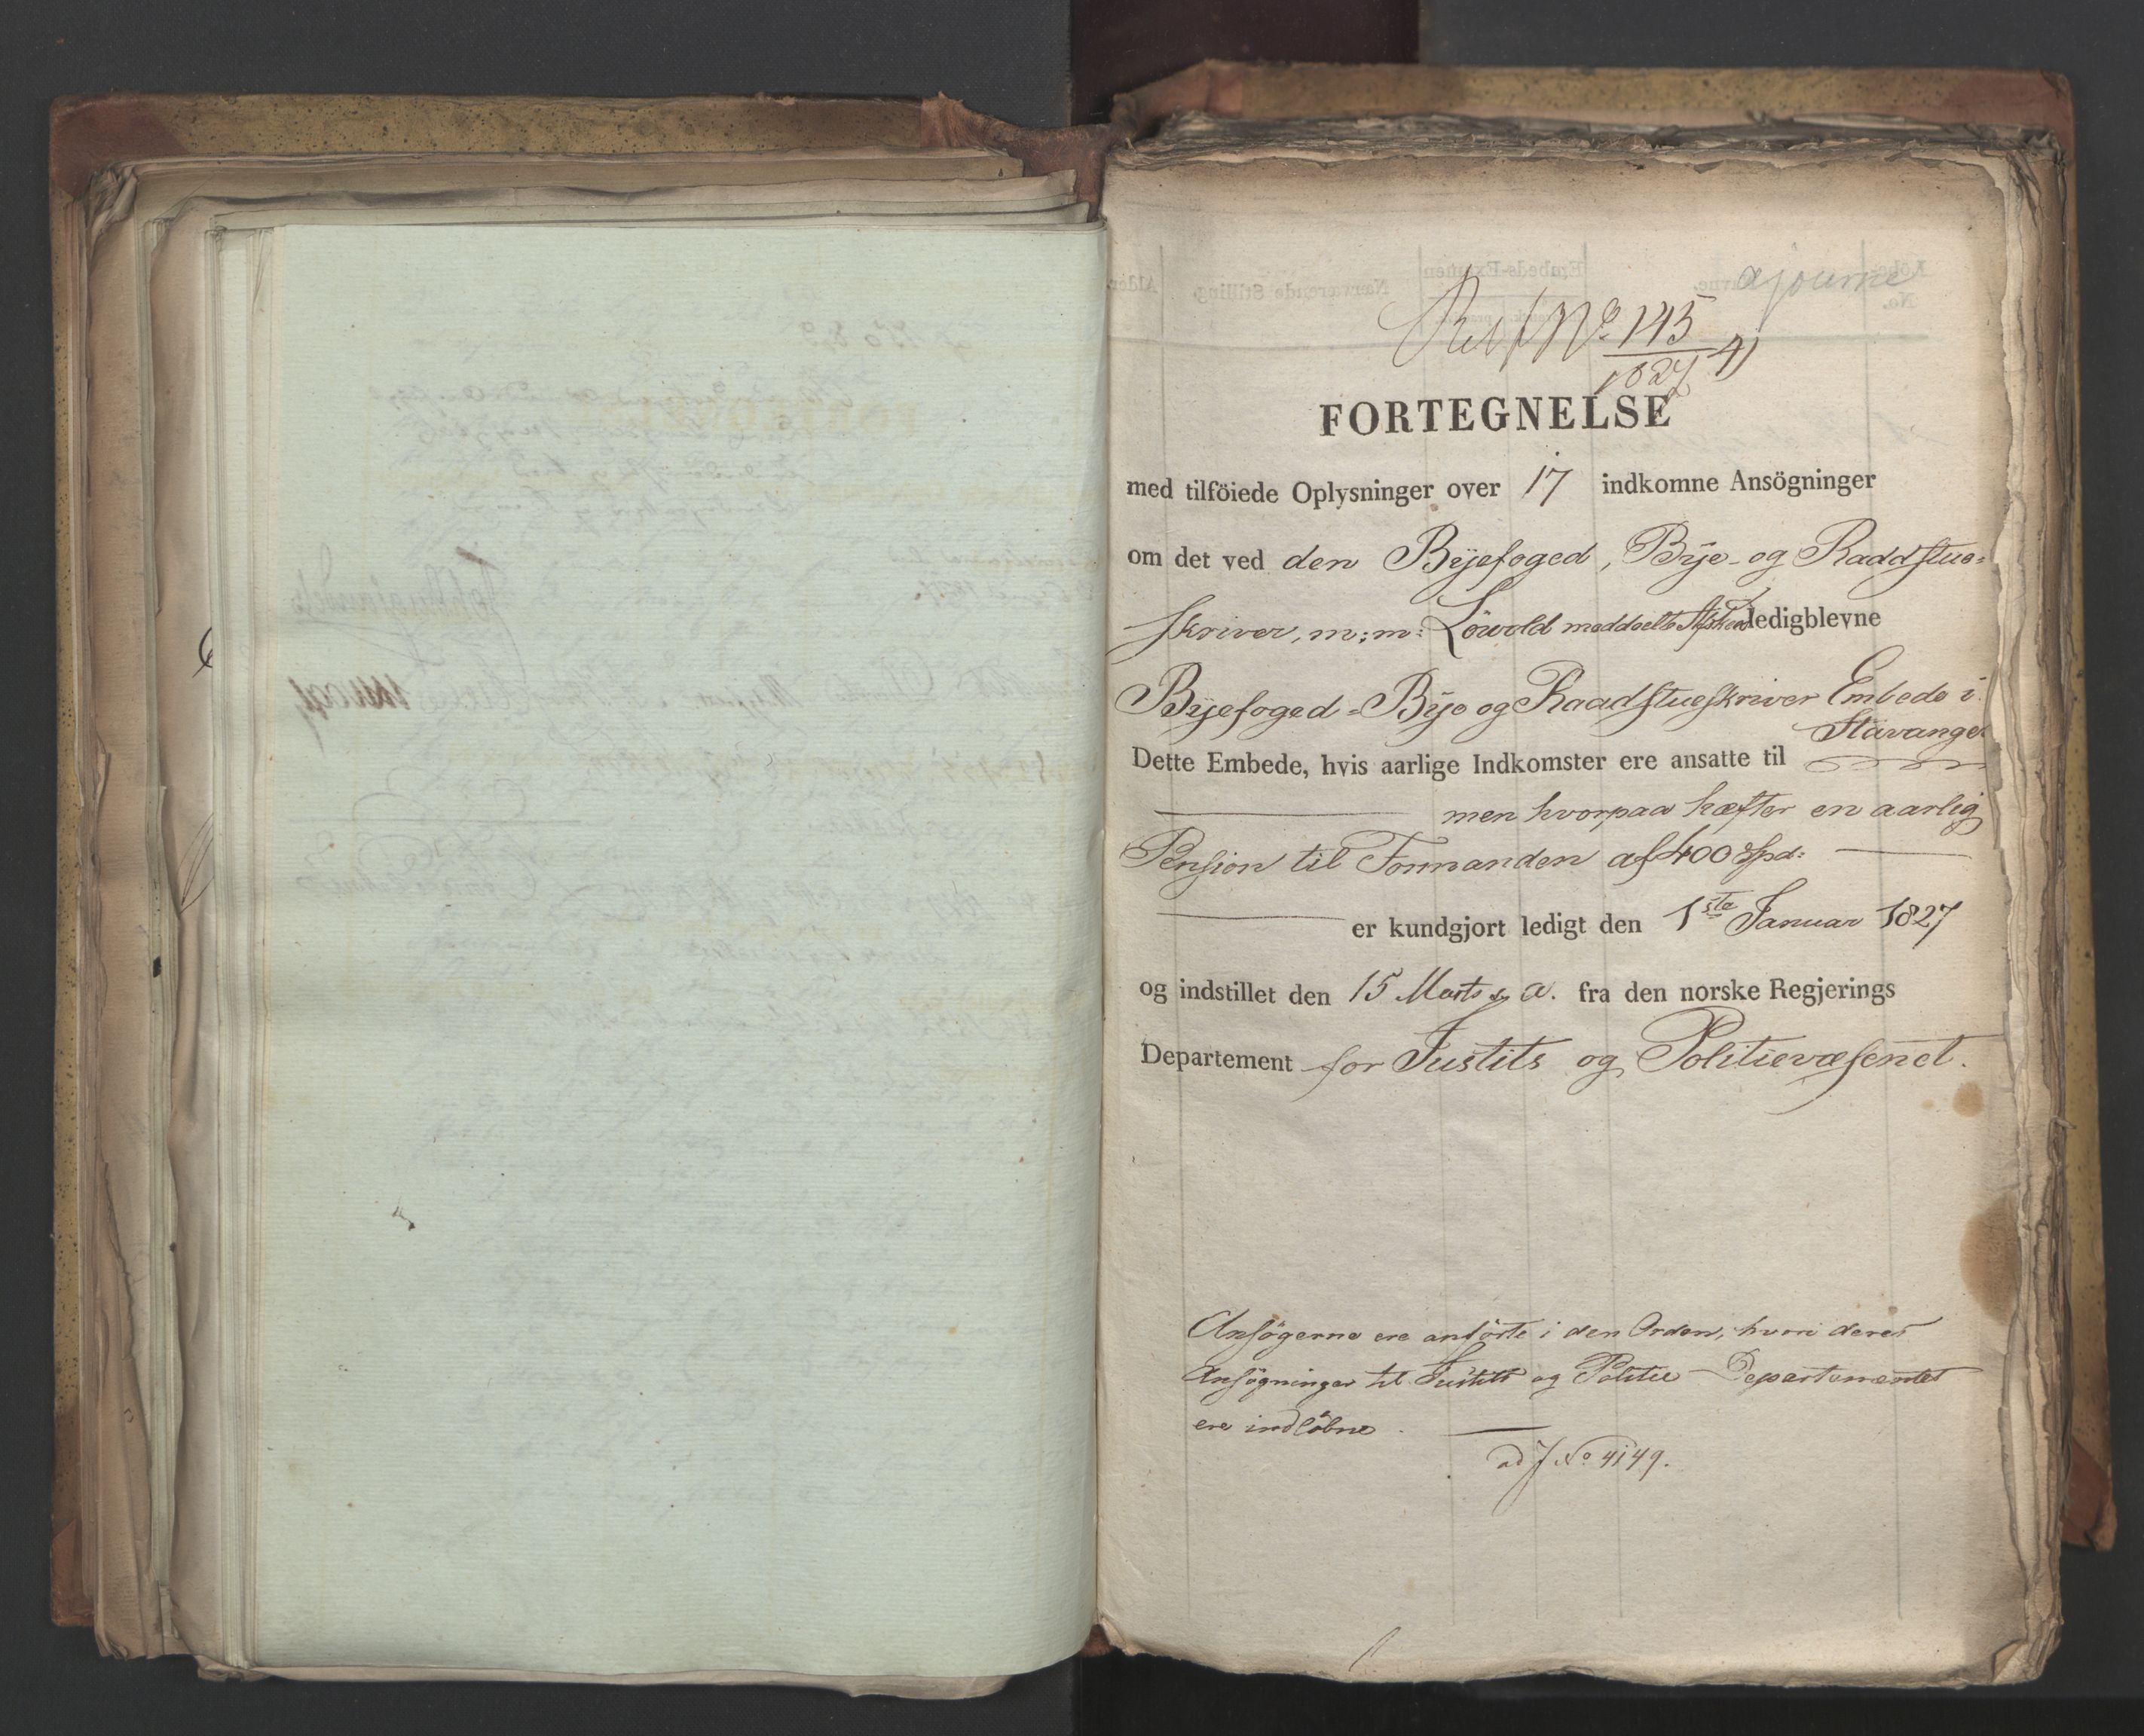 ajourné
Ref No 145
1827
FORTEGNELSE
med tilföiede Oplysninger over 17 indkomne Ansögninger
om det ved den Byefoged, Bye- og Raadstue-
skriver, m: m: Löwold meddeelte Afskeed ledigblevne
Byefoged- Bye og Raadstueskriver Embede i
Stavanger
Dette Embede, hvis aarlige Indkomster ere ansatte til
men hvorpaa hæfter en aarlig
Pension til Formanden af 400 Spd:
er kundgjort ledigt den 1ste Januar 1827
og indstillet den 15 Marts s. A. fra den norske Regjerings
Departement for Justits og Politievæsenet.
Ansögerne ere anförte i den Orden, hvori deres
Ansögninger til Justits og Politie Departementet
ere indlöbne.
ad J No 4149.